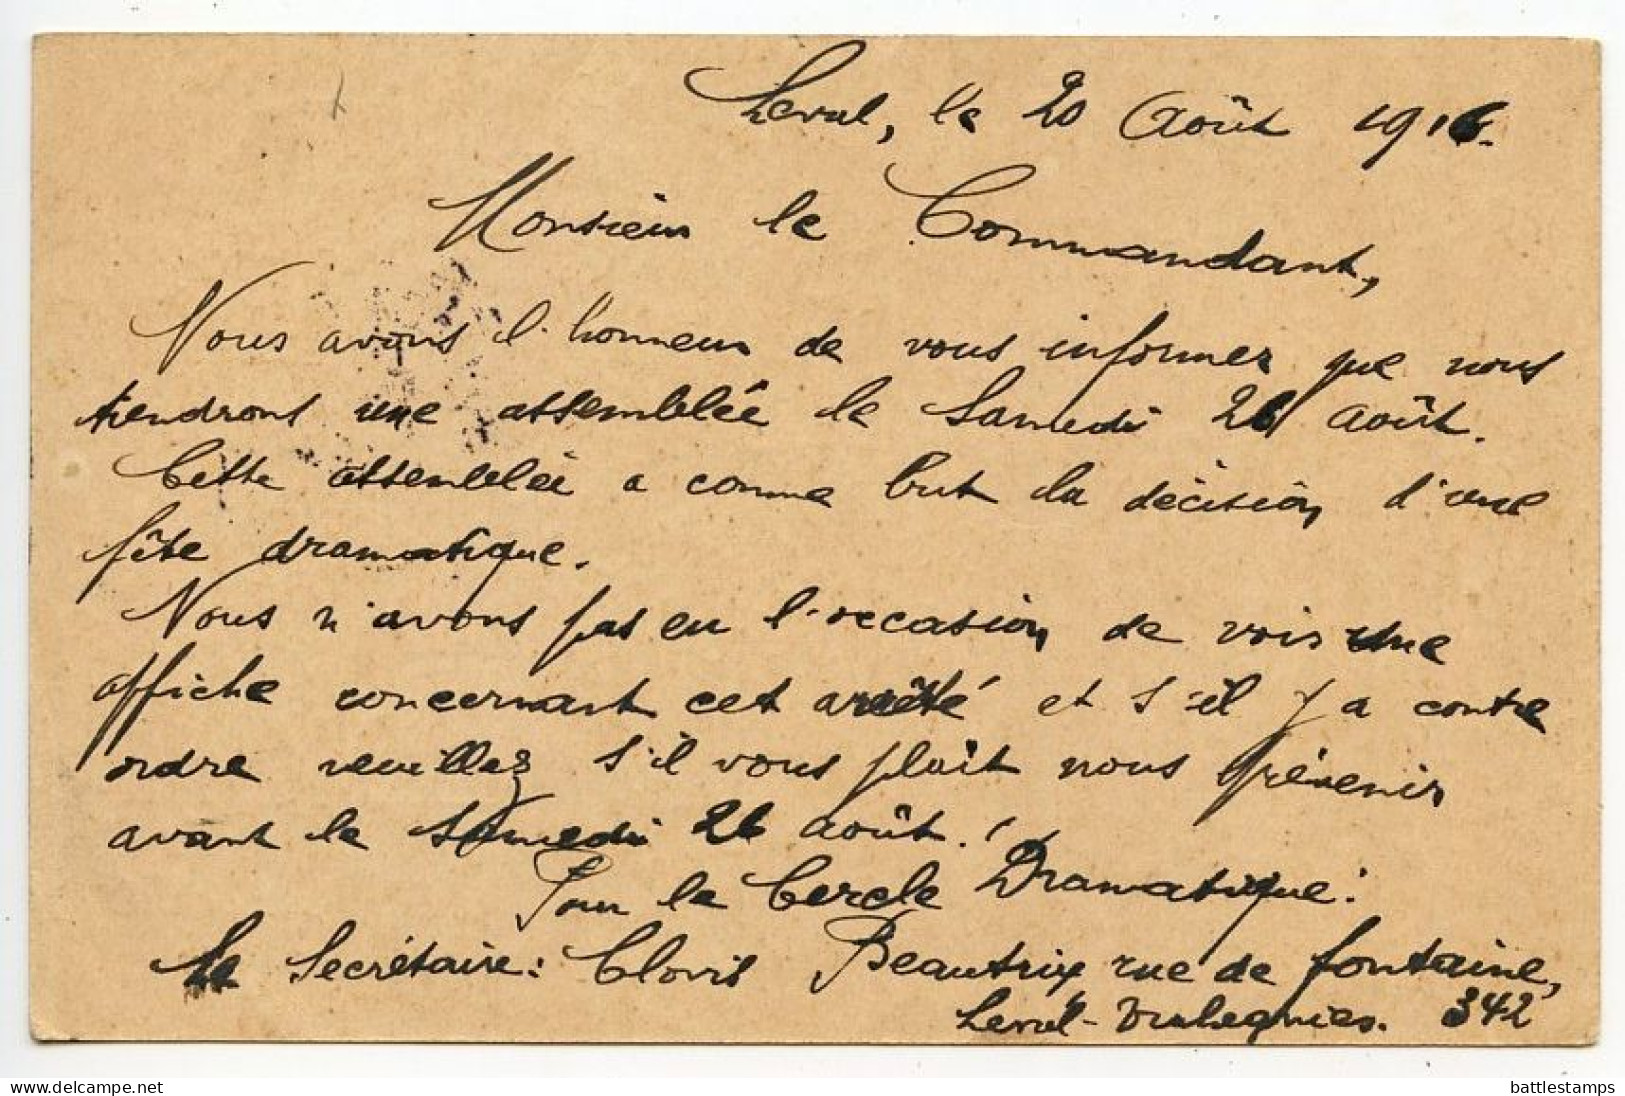 Leval, le 20 Août 1916.
Monsieur le Commandant,
Nous avons l'honneur de vous informer que nous
tiendrons une assemblée le Samedi 26 août.
Cette assemblée a comme but la décision d'une
fête dramatique.
Nous n'avons pas eu l'occasion de voir une
affiche concernant cet arrêté et s'il y a contre
ordre veuillez s'il vous plaît nous prévenir
avant le samedi 26 août.!
Pour le Cercle Dramatique:
Le Secrétaire: Clovis Beautrix rue de fontaine,
Leval-Trahegnies. 342
battlestamps
www.delcampe.net